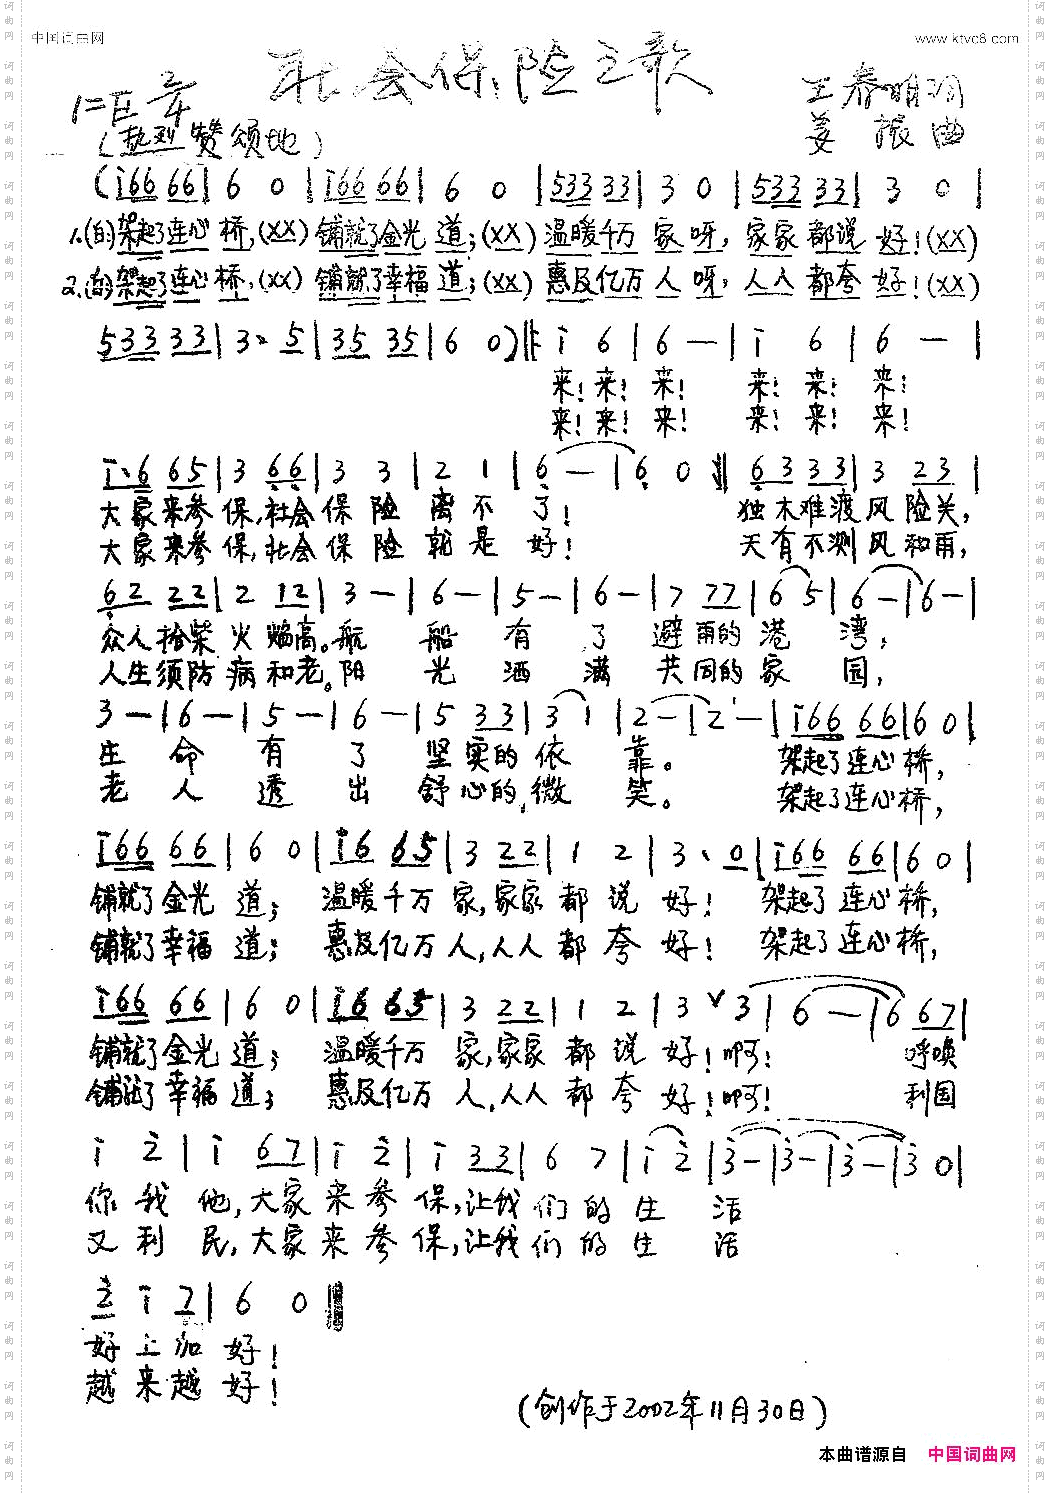 中国词曲网
www.ktvc8.com
社会保险之歌
1=E 2/4
王春明词
(热烈 赞颂地)
姜 振 曲
(i66 66| 6 0 |i66 66| 6 0 |533 33| 3 0 |533 33| 3 0 |
1.(白)架起了连心 桥,(XX) 铺就了金光 道;(XX) 温暖千万 家 呀, 家家 都说 好!(XX)
2.(白)架起了连心 桥,(XX) 铺就了幸福 道;(XX) 惠及亿万 人 呀, 人人 都夸 好!(XX)
533 33| 3· 5 |35 35| 6 0)‖: i 6 | 6 — | i 6 | 6 — |
来! 来! 来! 来! 来! 来!
来! 来! 来! 来! 来! 来!
i·6 65 | 3 66 | 3 3 | 2 1 | 6 — | 6 0 ‖ 63 33 | 3 23 |
大家来参 保,社会 保 险 离 不 了! 独木难渡 风 险关,
大家来参 保,社会 保 险 就 是 好! 天有不测 风 和雨,
62 22 | 2 12 | 3 — | 6 — | 5 — | 6 — | 7 77 | 6 5 | 6 — | 6 — |
众人拾柴 火 焰高。航 船 有 了 避 雨的 港 湾;
人生须防 病 和老。阳 光 洒 满 共 同的 家 园,
3 — | 6 — | 5 — | 6 — | 5 33 | 3 1 | 2 — | 2 — | i66 66 | 6 0 |
生 命 有 了 坚 实的 依 靠。 架起了连心 桥,
老 人 透 出 舒 心的 微 笑。 架起了连心 桥,
i66 66 | 6 0 | i6 65 | 3 22 | 1 2 | 3· 0 | i66 66 | 6 0 |
铺就了金光 道; 温暖千万 家,家家 都 说 好! 架起了连心 桥,
铺就了幸福 道; 惠及亿万 人,人人 都 夸 好! 架起了连心 桥,
i66 66 | 6 0 | i6 65 | 3 22 | 1 2 | 3 ∨ 3 | 6 — | 6 67 |
铺就了金光 道; 温暖千万 家,家家 都 说 好!啊! 呼唤
铺就了幸福 道; 惠及亿万 人,人人 都 夸 好!啊! 利国
i 2 | i 67 | i 2 | i 33 | 6 7 | i 2 | 3 — | 3 — | 3 — | 3 0 |
你 我 他,大家 来 参 保,让我 们 的 生 活
又 利 民,大家 来 参 保,让我 们 的 生 活
2 i 7 | 6 0 ‖
好 上 加 好!
越 来 越 好!
(创作于2002年11月30日)
本曲谱源自 中国词曲网